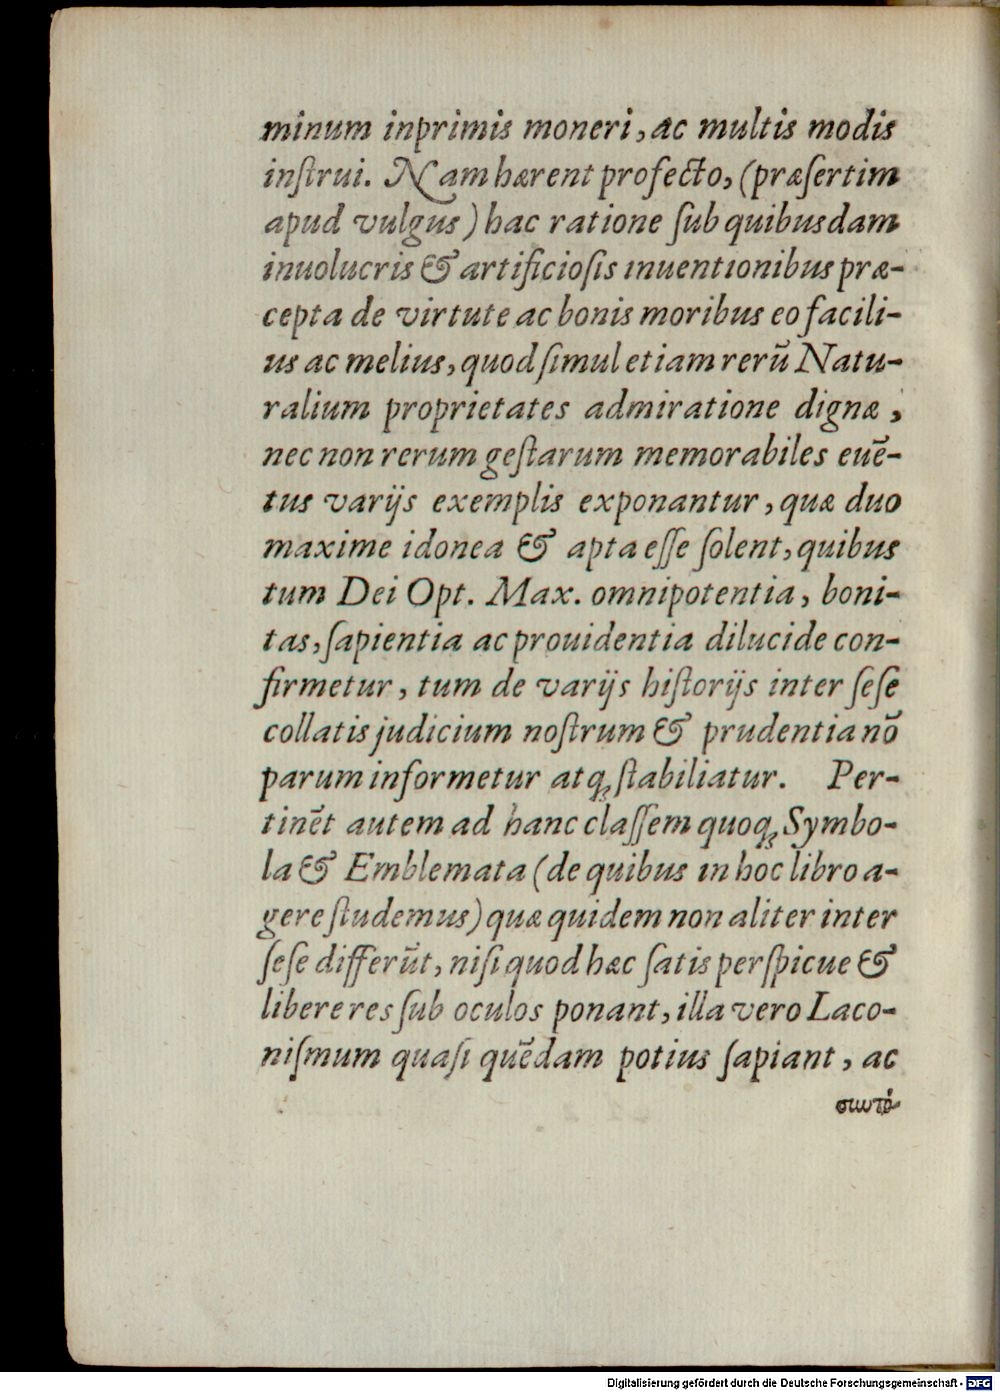 minum inprimis moneri, ac multis modis
inſtrui. Nam hærent profecto, (præſertim
apud vulgus) hac ratione ſub quibusdam
inuolucris & artificioſis inuentionibus præ-
cepta de virtute ac bonis moribus eo facili-
us ac melius, quod ſimul etiam rerũ Natu-
ralium proprietates admiratione dignæ,
nec non rerum geſtarum memorabiles euẽ-
tus varijs exemplis exponantur, quæ duo
maxime idonea & apta eſſe ſolent, quibus
tum Dei Opt. Max. omnipotentia, boni-
tas, ſapientia ac prouidentia dilucide con-
firmetur, tum de varijs hiſtorijs inter ſeſe
collatis judicium noſtrum & prudentia nõ
parum informetur atq; ſtabiliatur. Per-
tinẽt autem ad hanc claſſem quoq; Symbo-
la & Emblemata (de quibus in hoc libro a-
gere ſtudemus) quæ quidem non aliter inter
ſeſe differũt, niſi quod hæc ſatis perſpicue &
libere res ſub oculos ponant, illa vero Laco-
niſmum quaſi quẽdam potius ſapiant, ac
Digitalisierung gefördert durch die Deutsche Forschungsgemeinschaft - DFG